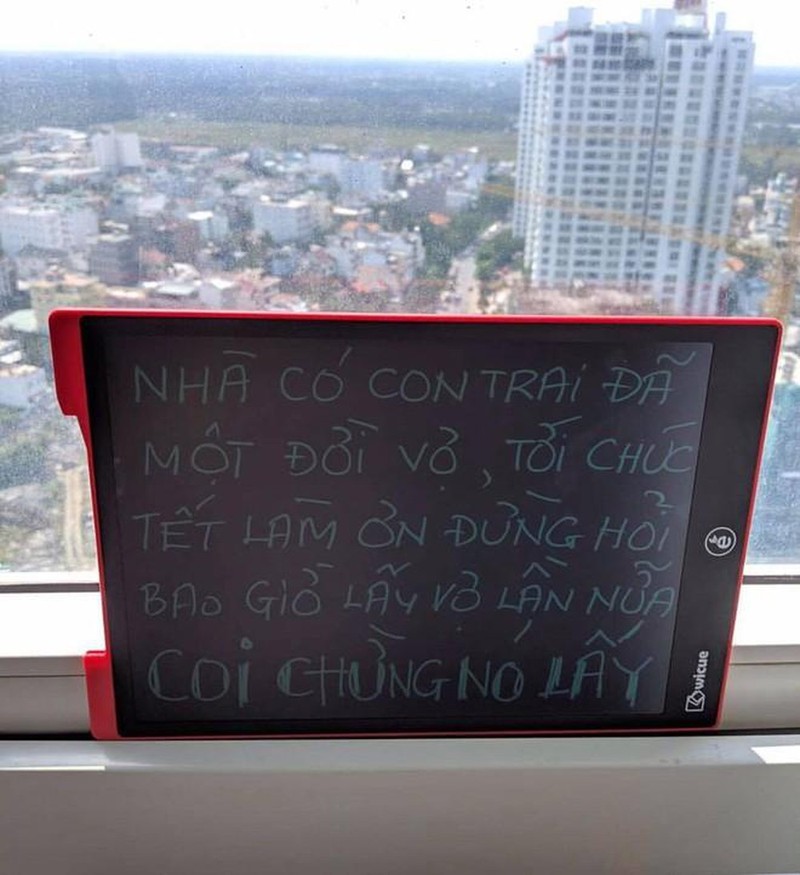 NHÀ CÓ CON TRAI ĐÃ
MỘT ĐỜI VỢ, TỚI CHÚC
TẾT LÀM ƠN ĐỪNG HỎI
BAO GIỜ LẤY VỢ LẦN NỮA
COI CHỪNG NÓ LẤY
wicue